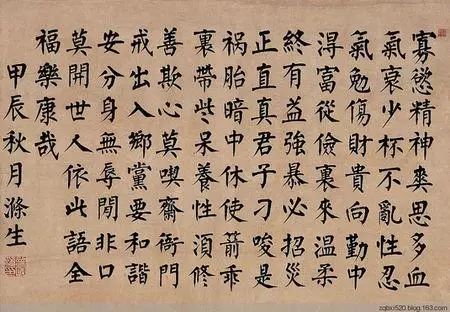 寡慾精神爽思多血
氣衰少杯不亂性忍
氣勉傷財貴向勤中
淂富從儉裏來温柔
終有益強暴必招災
正直真君子刁唆是
祸胎暗中休使箭乖
裏帶些呆養性須修
善欺心莫喫齋衙門
戒出入鄉黨要和諧
安分身無辱閒非口
莫開世人依此語全
福樂康哉
甲辰秋月滌生
zqbxi520.blog.163.com